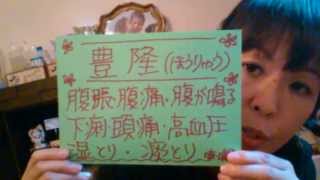 豊隆(ほうりゅう)
腹脹・腹痛・腹が鳴る
下痢・頭痛・高血圧
湿とり・痰とり